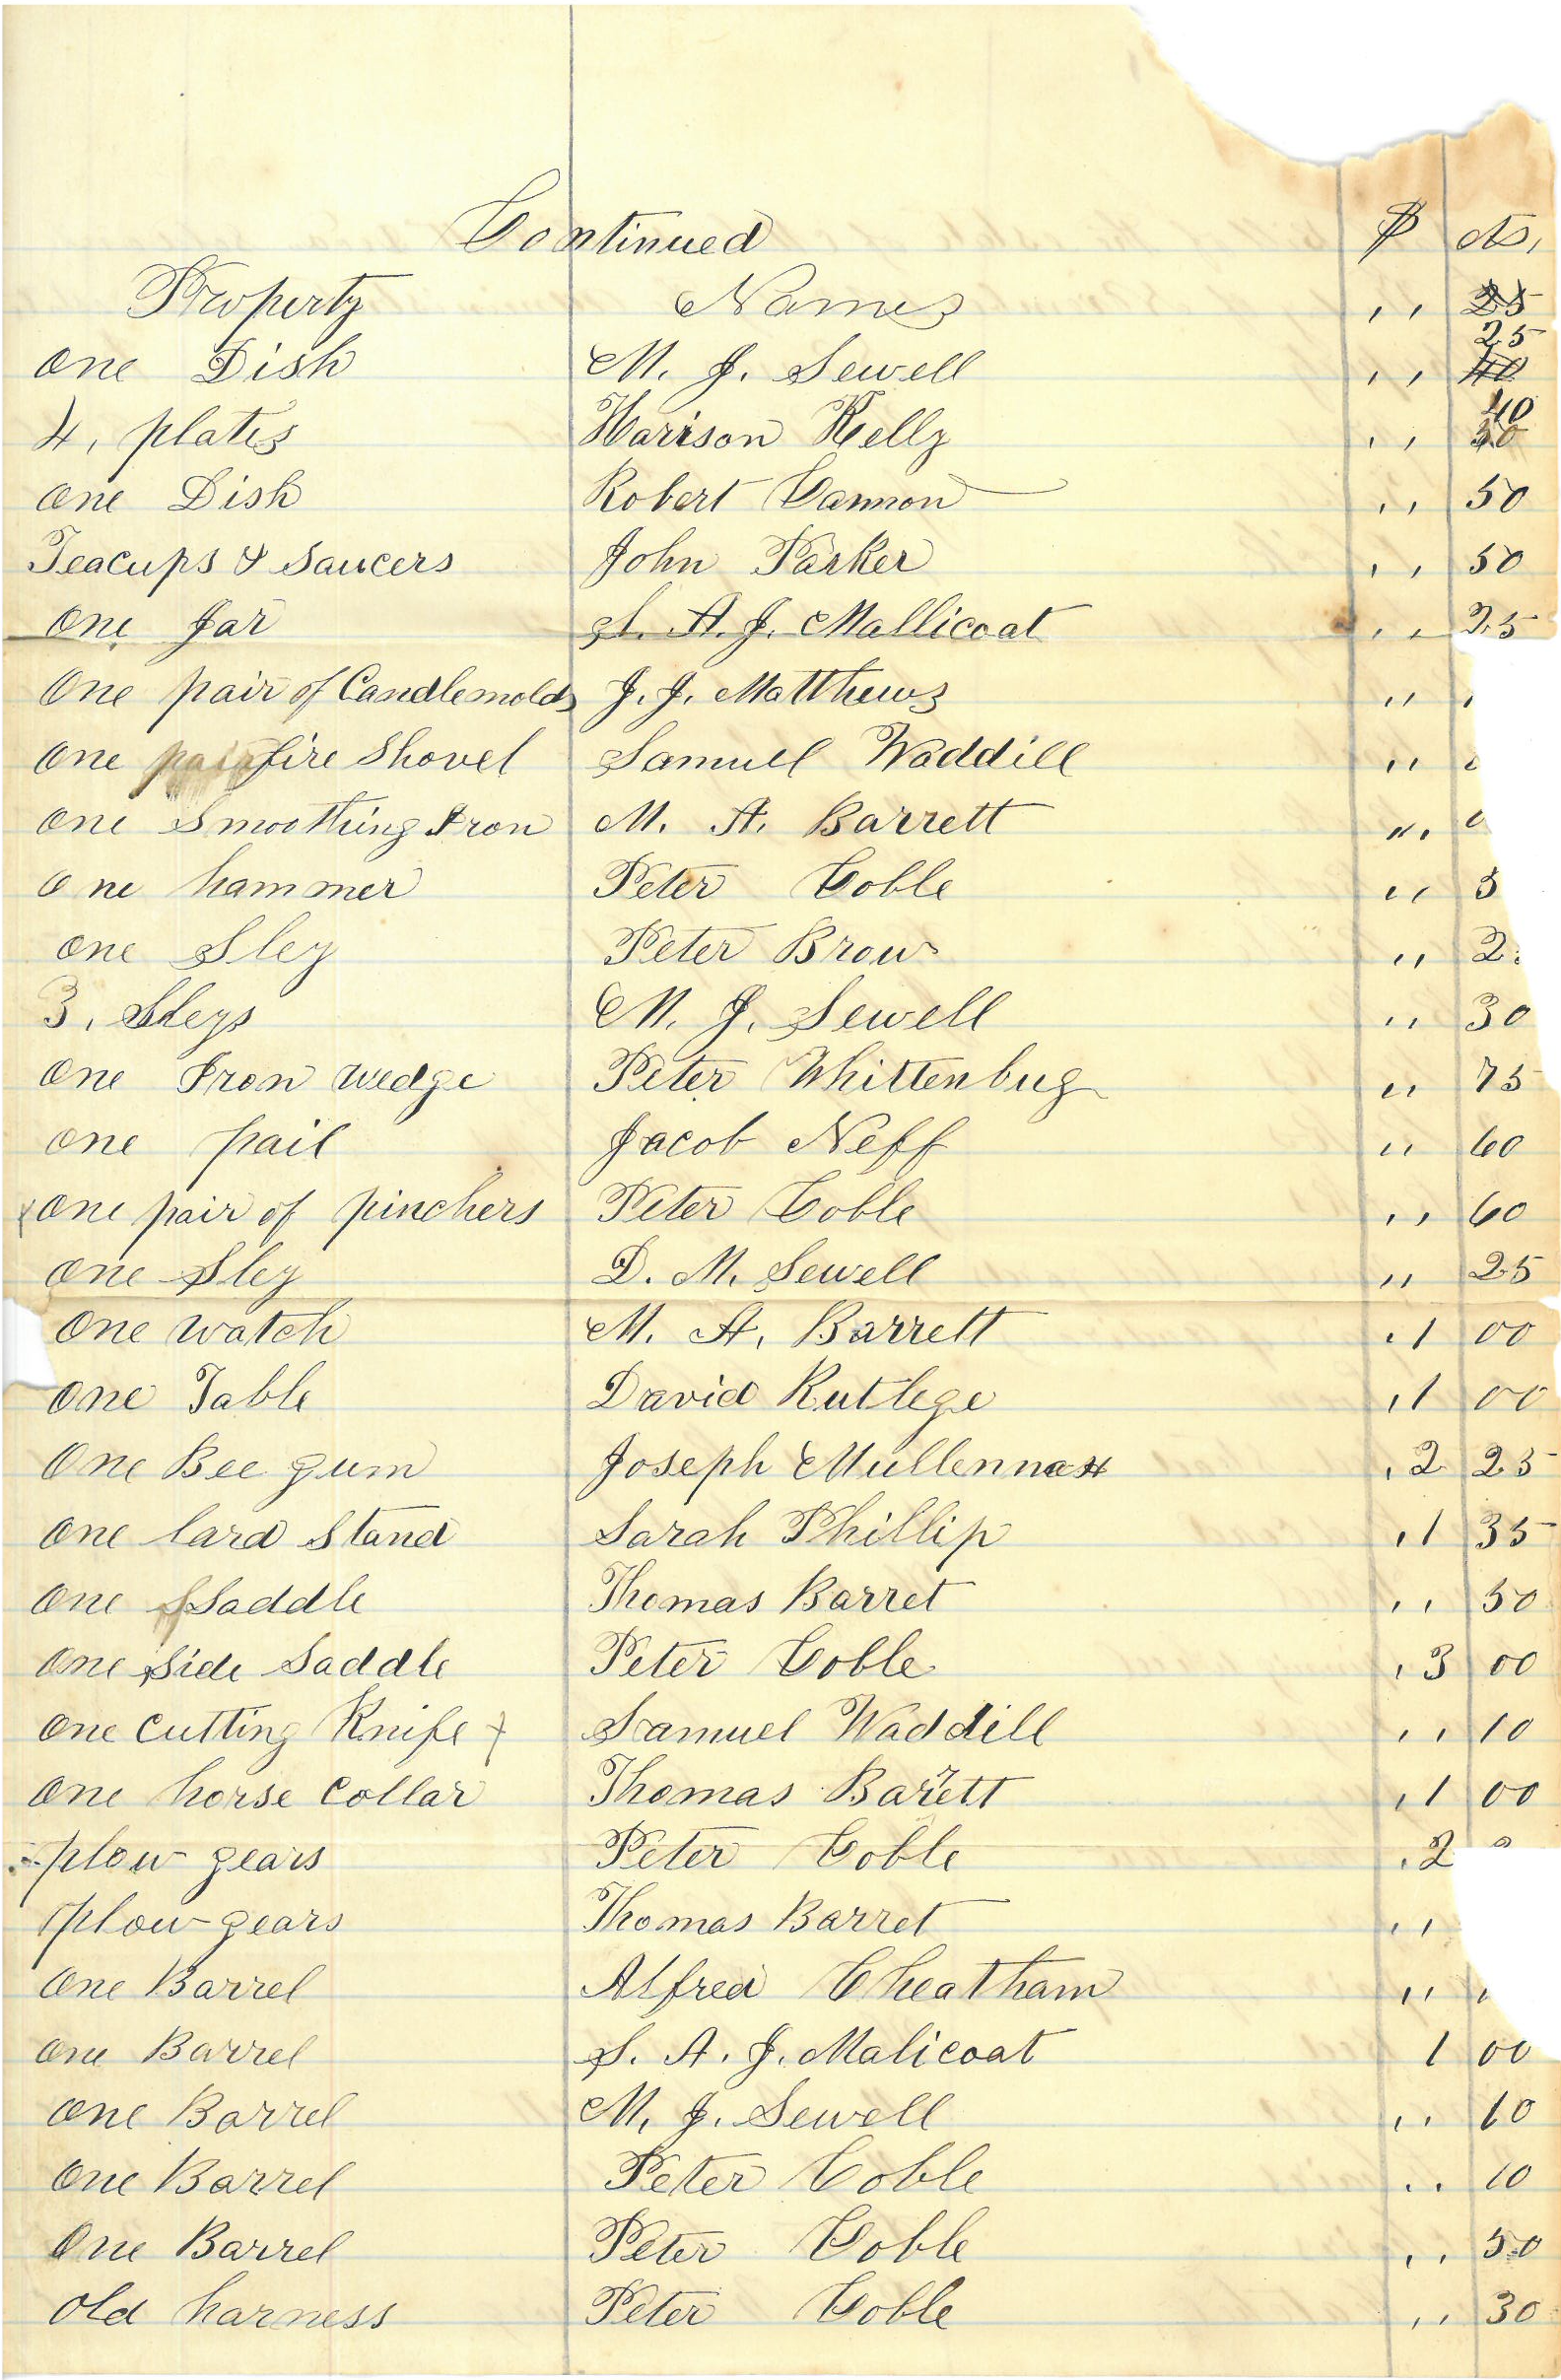 Continued $ cts,
Property Names ,, 25
25
One Dish M. J. Sewell ,, 40
40
4, plates Harison Kelly ,, 50
One Dish Robert Cannon ,, 50
Teacups & Saucers John Parker ,, 50
One Jar S. A. J. Mallicoat ,, 25
One pair of Candlemolds J. J. Matthews ,,
One pair fire Shovel Samuel Waddill ,,
One Smoothing Iron M. A. Barrett ,,,
One hammer Peter Coble ,, 5
one Sley Peter Brow ,, 2
3, Sleys M. J. Sewell ,, 30
One Iron wedge Peter Whittenbug ,, 75
one pail Jacob Neff ,, 60
One pair of pinchers Peter Coble ,, 60
One Sley D. M. Sewell ,, 25
One watch M. A. Barrett ,1 00
One Table David Rutlege ,1 00
One Bee gum Joseph Mullennax ,2 25
One lard Stand Sarah Phillip ,1 35
One Saddle Thomas Barret ,, 50
One Side Saddle Peter Coble ,3 00
One Cutting Knife Samuel Waddill ,, 10
One horse Collar Thomas Barrett ,1 00
plow gears Peter Coble ,2
plow gears Thomas Barret ,,
One Barrel Alfred Cheatham ,,
One Barrel S. A. J. Malicoat 1 00
One Barrel M, J. Sewell ,, 10
One Barrel Peter Coble .. 10
One Barrel Peter Coble ,, 50
Old harness Peter Coble ,, 30